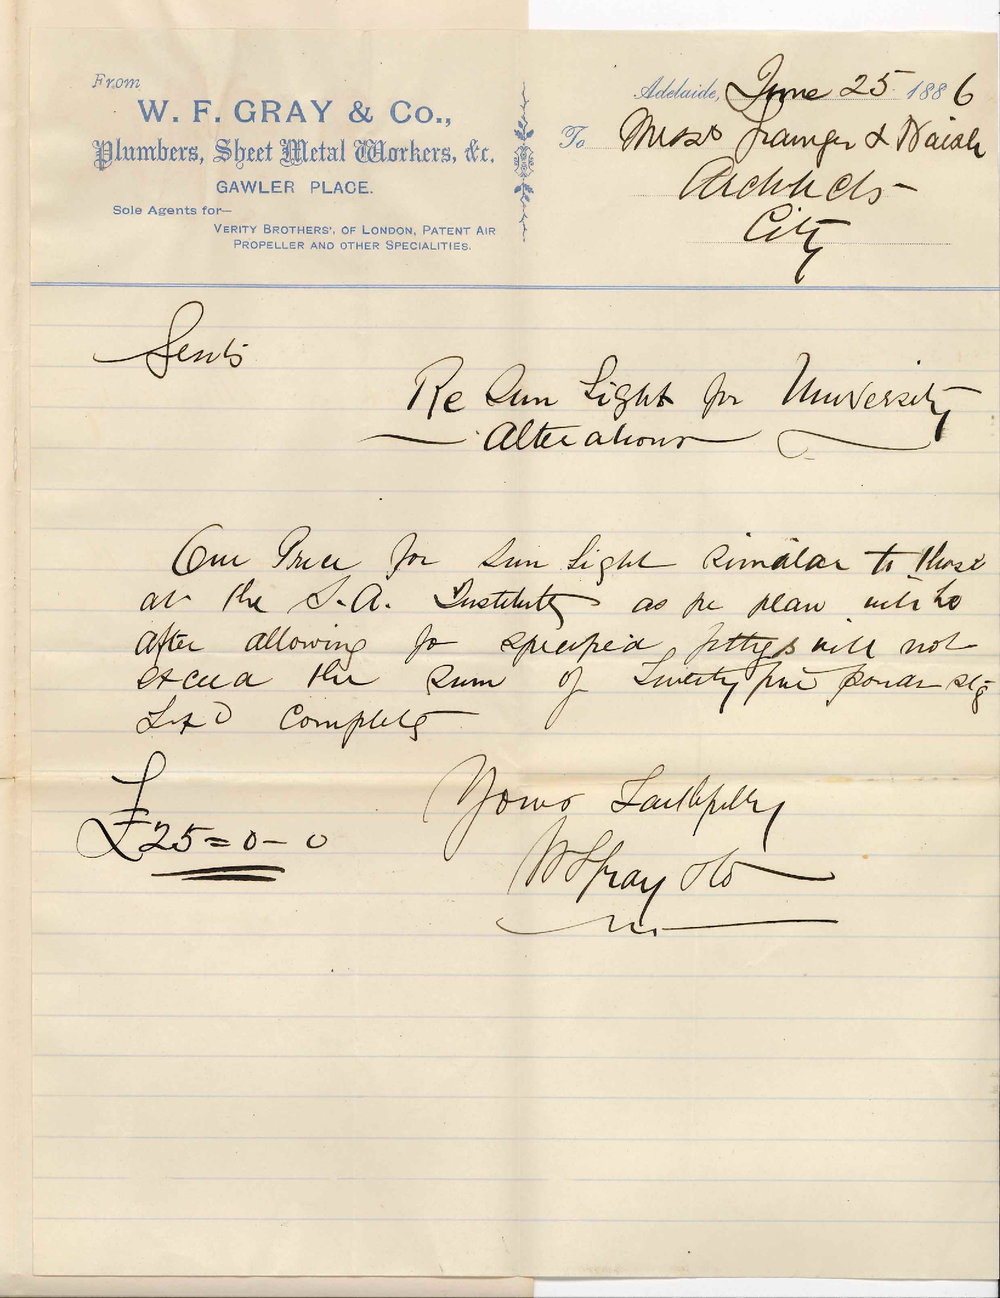 From
W. F. GRAY & Co.,
Plumbers, Sheet Metal Workers, &c.
GAWLER PLACE.
Sole Agents for—
VERITY BROTHERS', OF LONDON, PATENT AIR
PROPELLER AND OTHER SPECIALITIES.
Adelaide, June 25 1886
To Messrs Grainger & Naish
Architects
City
Gents
Re Sun Light for University
Alterations
Our Price for Sun Light similar to those
at the S.A. Institute as per plan
after allowing for specified fittings will not
exceed the sum of Twenty five pounds stg
complete
£25=0-0
Yours Faithfully
W F Gray & Co